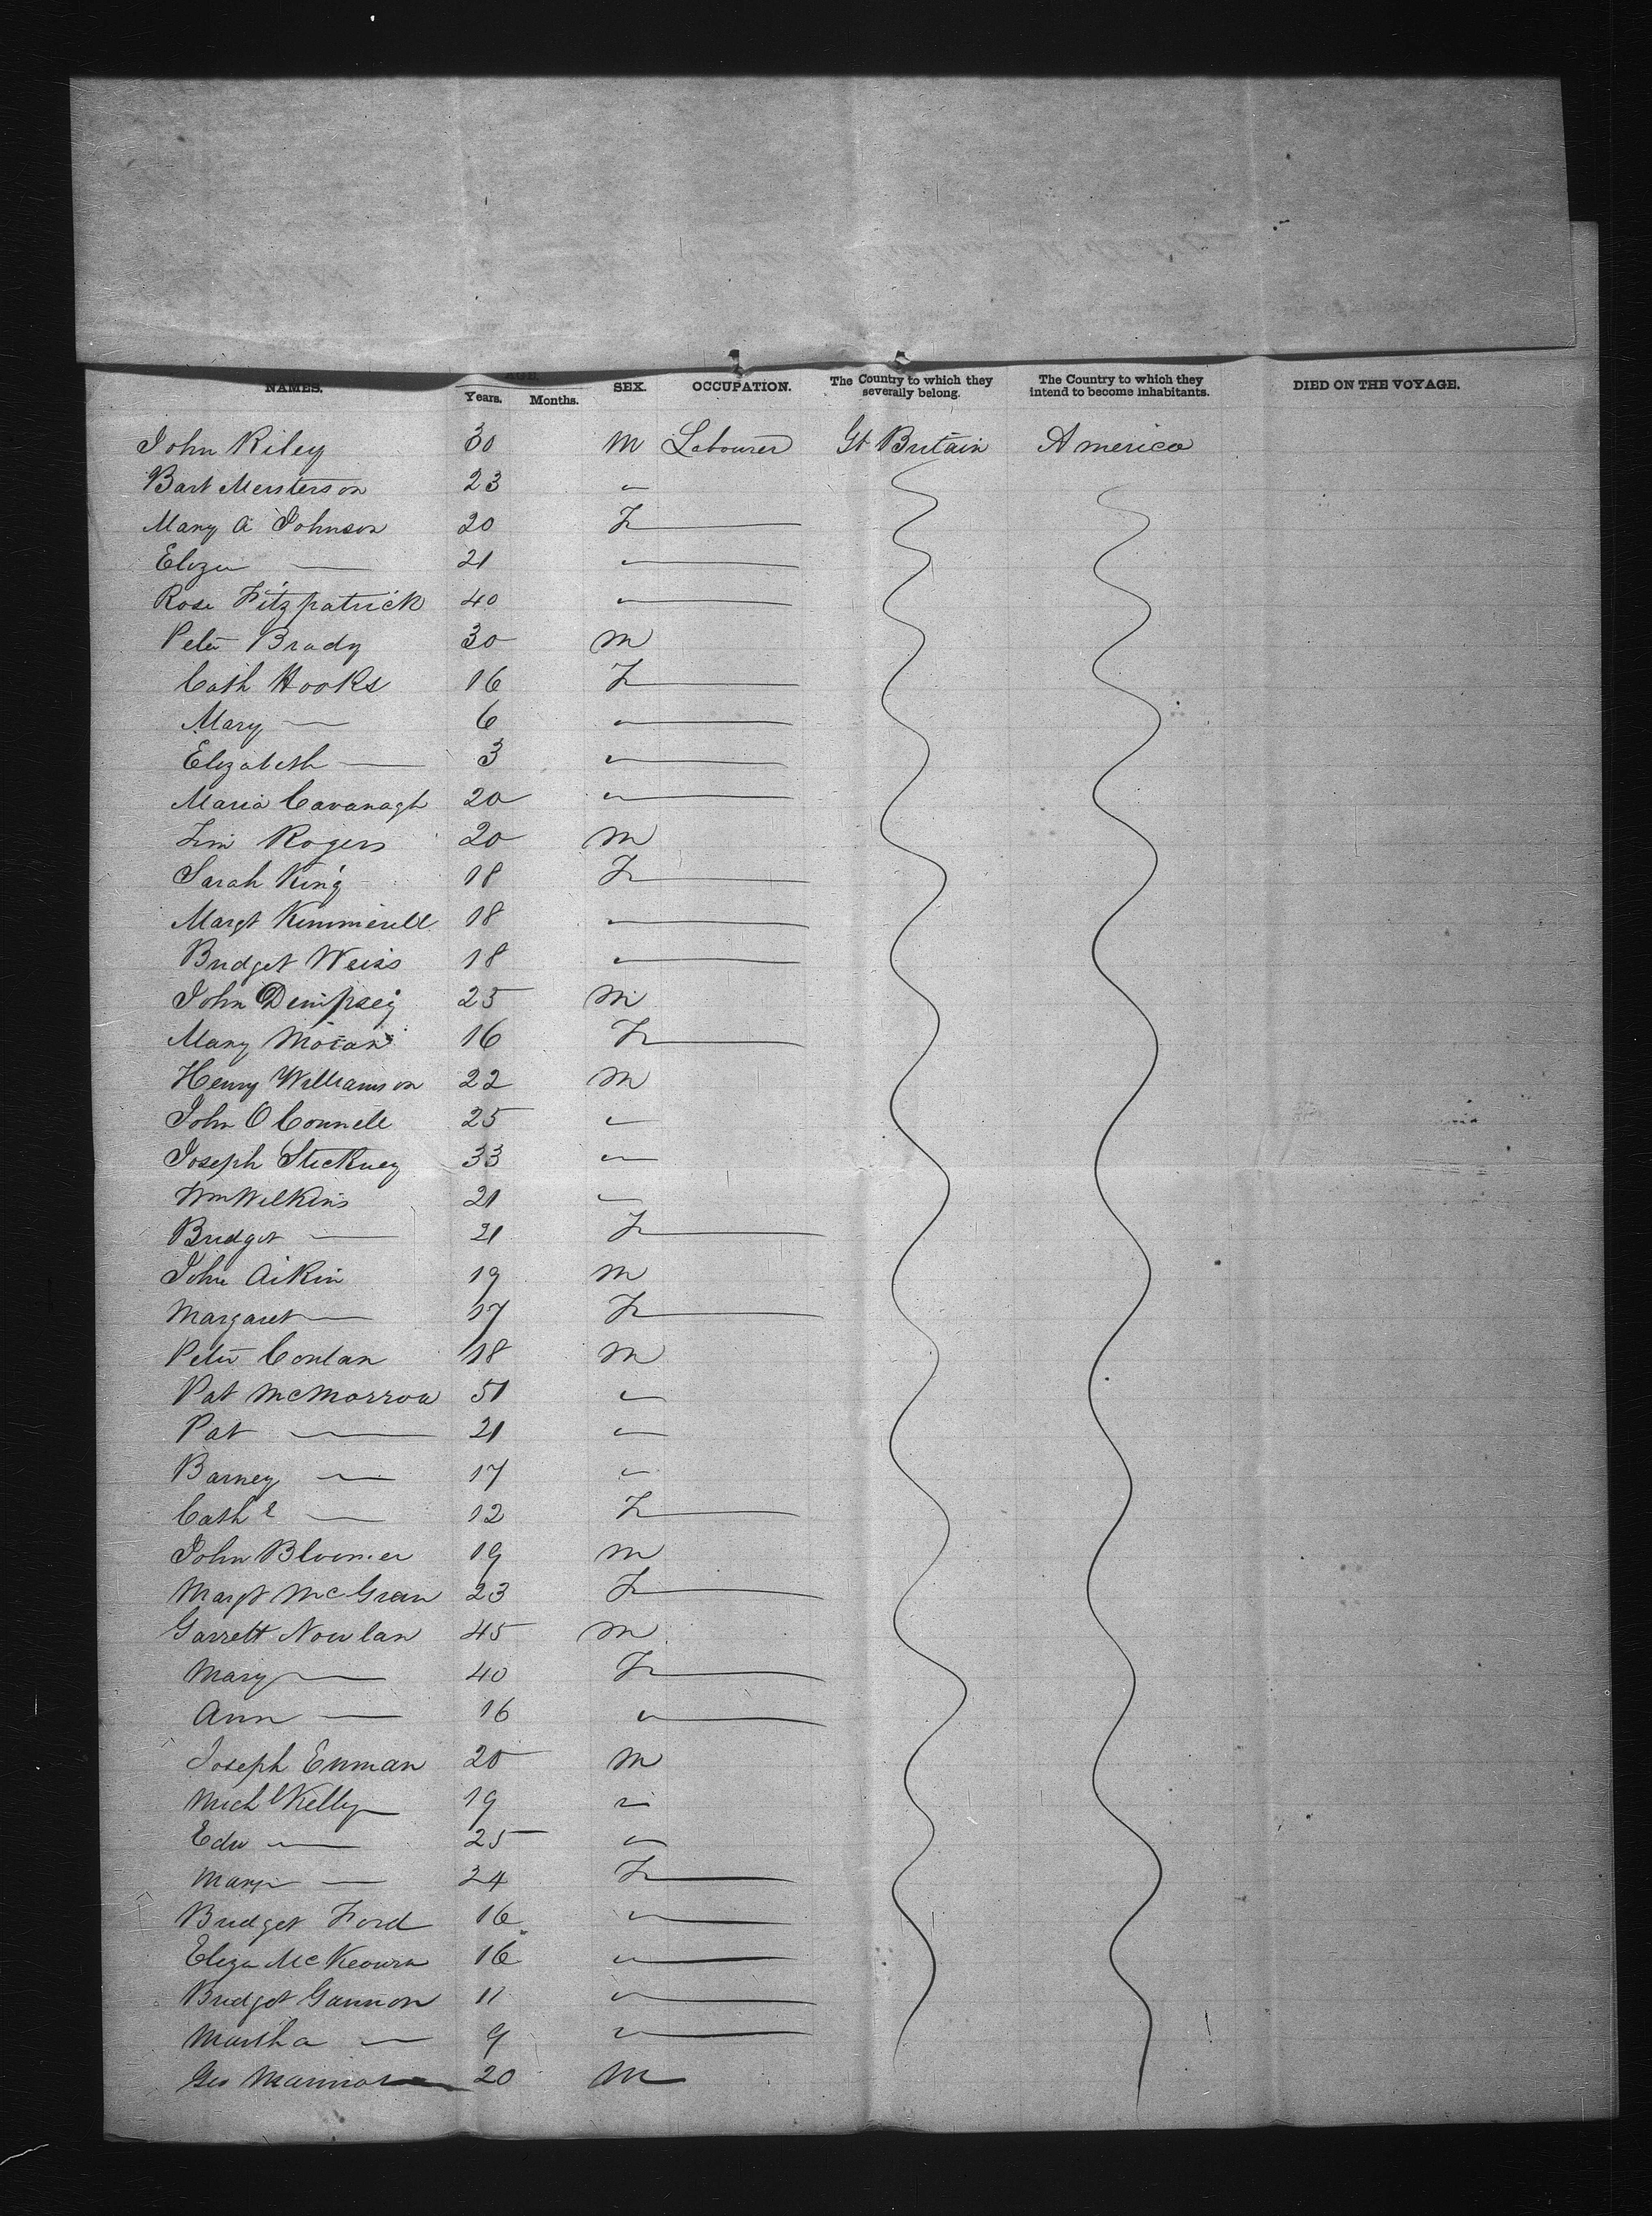 NAMES. AGE. Years. Months. SEX. OCCUPATION. The Country to which they severally belong. The Country to which they intend to become inhabitants. DIED ON THE VOYAGE.
John Riley 30 M Labourer Gt Britain America
Bart Mersterson 23 "
Mary A Johnson 20 F
Eliza — 21 "
Rose Fitzpatrick 40 "
Peter Brady 30 M
Cath Hooks 16 F
Mary — 6 "
Elizabeth — 3 "
Maria Cavanagh 20 "
Rogers 20 M
Sarah King 18 F
Margt 18 "
Bridget Weiss 18 "
John Dempsey 25 M
Mary Moran 16 F
Henry Williamson 22 M
John O Connell 25 "
Joseph Stickney 33 "
Wm Wilkins 21 "
Bridget — 21 F
John Aikin 19 M
Margaret — 17 F
Peter Conlan 18 M
Pat McMorrow 51 "
Pat — 21 "
Barney — 17 "
Cathe — 12 F
John Bloomer 19 M
Margt McGran 23 F
Garrett Nowlan 45 M
Mary — 40 F
Ann — 16 "
Joseph Enman 20 M
Michl Kelly 19 "
Edw — 25 "
Mary — 24 F
Bridget Ford 16 "
Eliza McKeown 16 "
Bridget Gannon 11 "
Martha — 9 "
Geo 20 M